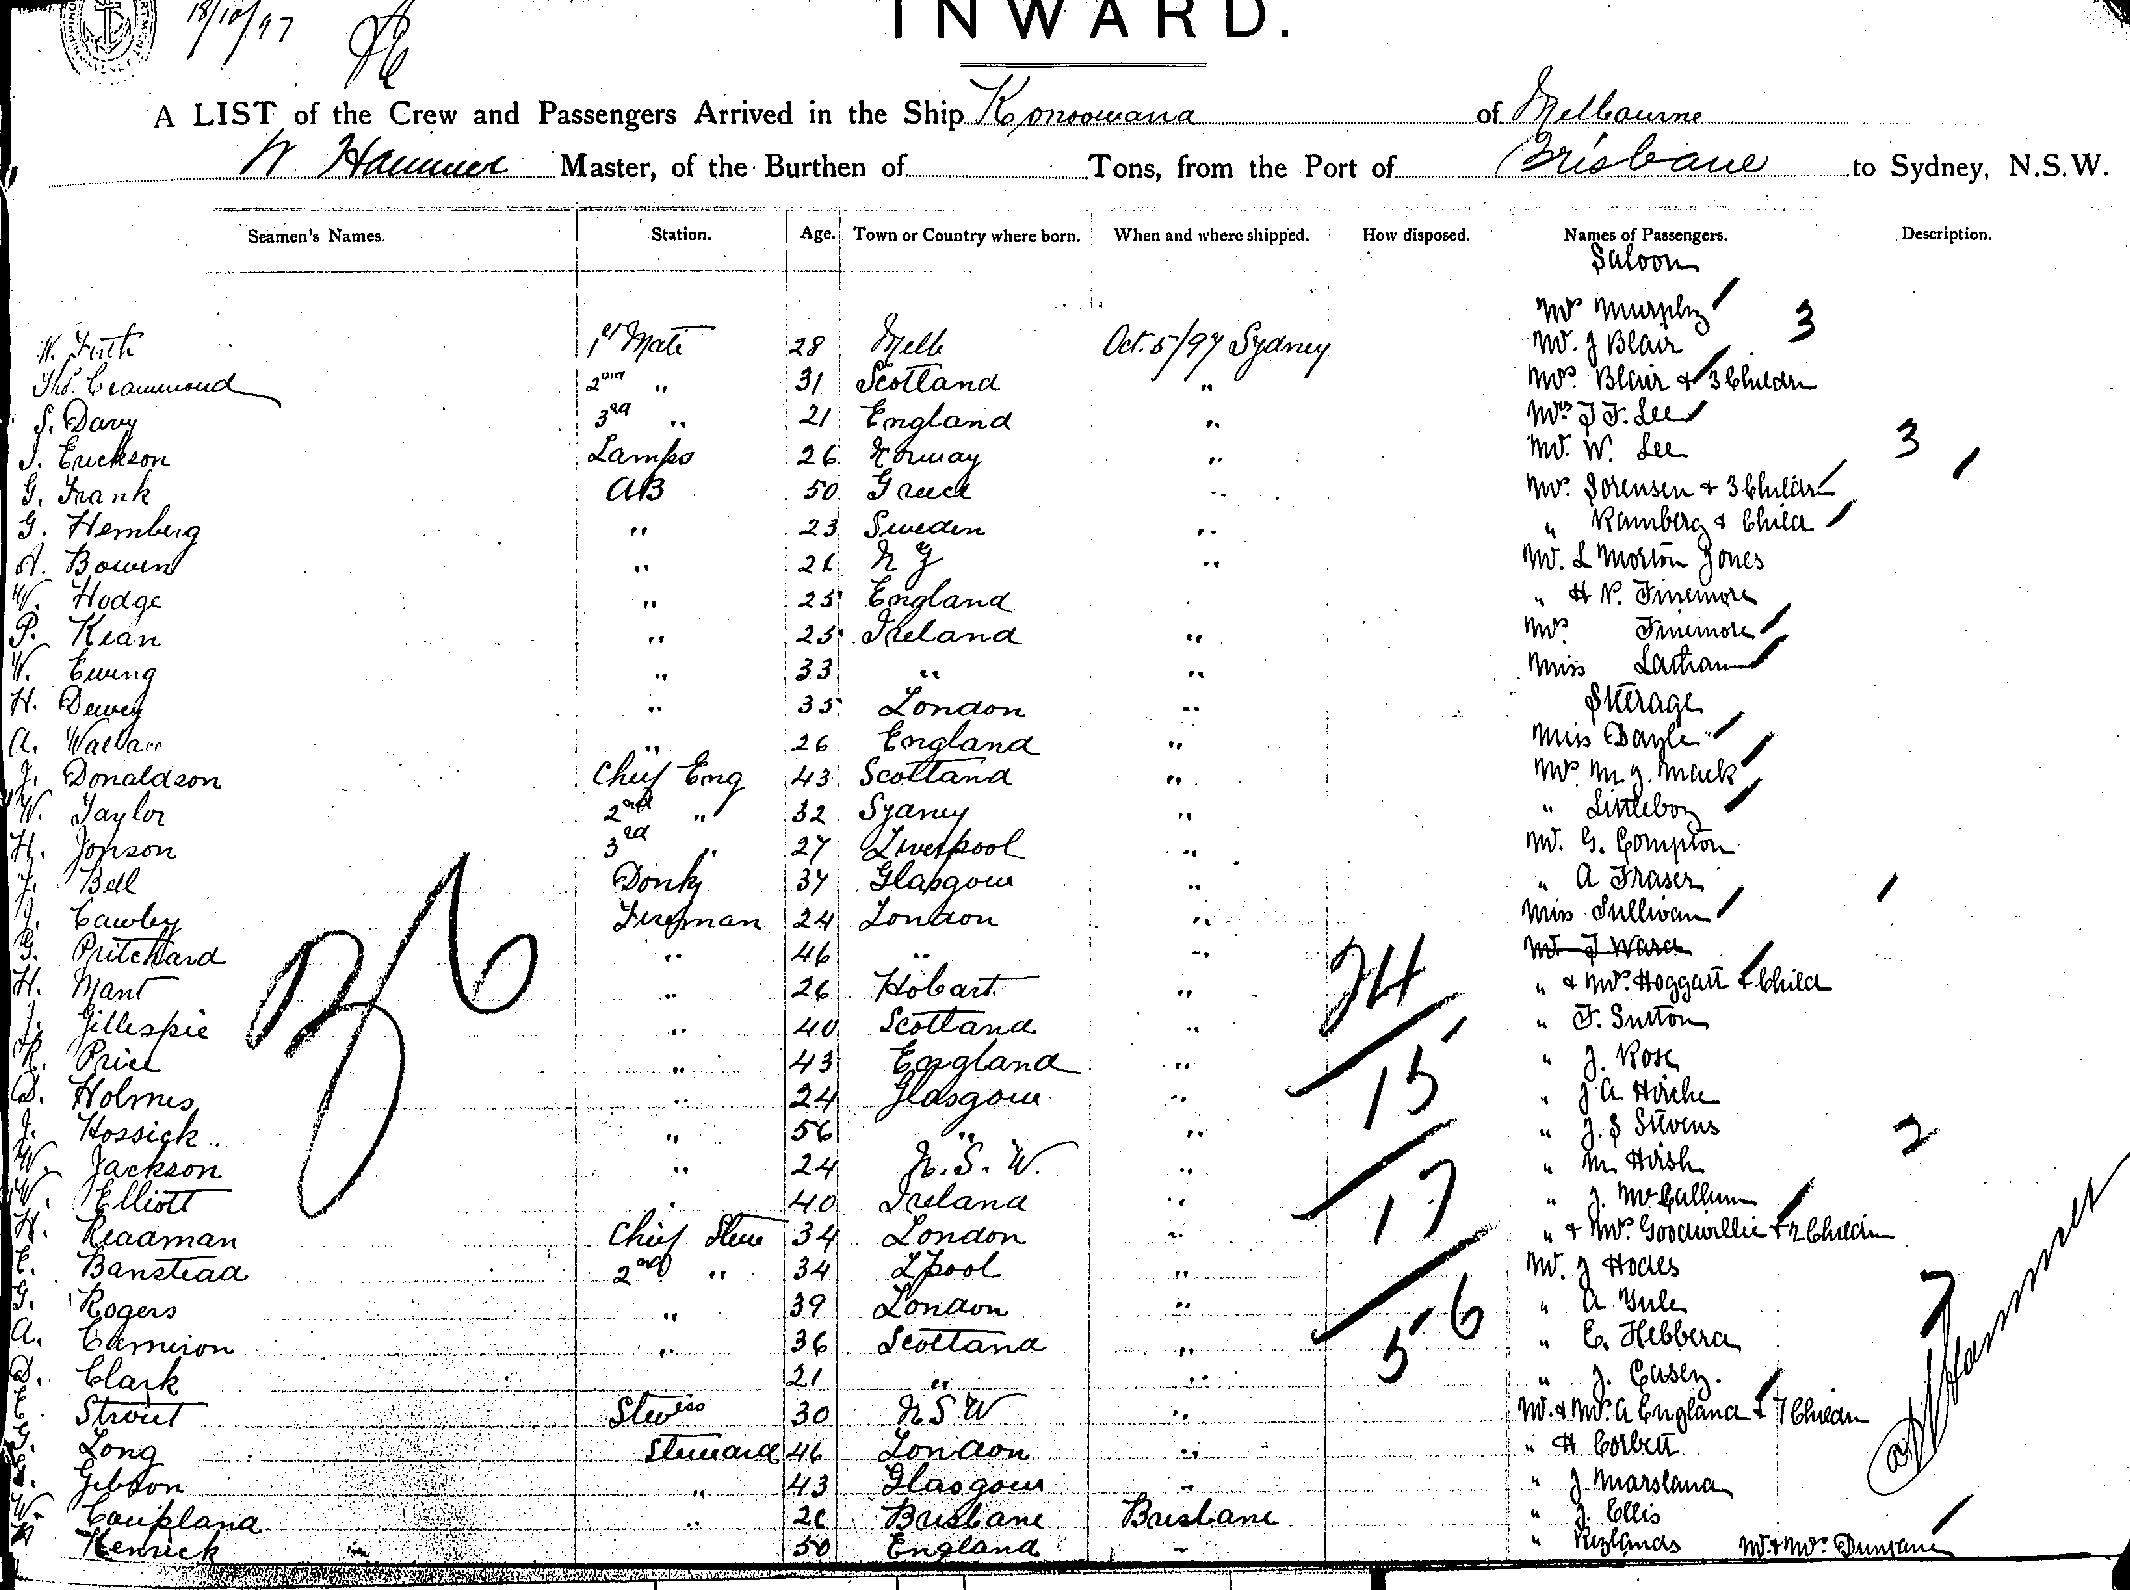 18/10/97
INWARD.
A LIST of the Crew and Passengers Arrived in the Ship Konoowana of Melbourne
W Hammer Master, of the Burthen of Tons, from the Port of Brisbane to Sydney, N.S.W.
Seamen's Names. Station. Age. Town or Country where born. When and where shipped. How disposed. Names of Passengers. Description.
Saloon
Mrs Murphy 3
W. Firth 1st Mate 28 Melb Oct. 5/97 Sydney Mr. J Blair
Thos. Crammond 2nd " 31 Scotland " Mrs. Blair & 3 Childrn
S. Davy 3rd " 21 England " Mrs J F. Lee
J. Erickson Lamps 26 Norway " Mr. W. Lee 3
G. Frank AB 50 Greece " Mrs. Sorensen & 3 Childrn
G. Hernberg " 23 Sweden " " Ramberg & Child
A. Bowen " 26 N Z " Mr. L Morton Jones
W. Hodge " 25 England " H N. Finemore
P. Kean " 25 Ireland " Mrs Finemore
W. Ewing " 33 " " Miss Latham
H. Dewey " 35 London " Steerage
A. Wallace " 26 England " Miss Dayle
J. Donaldson Chief Eng 43 Scotland " Mrs M. J. Mack
W. Taylor 2nd " 32 Sydney " " Littleboy
H. Jonson 3rd " 27 Liverpool " Mr. G. Compton
J. Bell Donky 37 Glasgow " " A Fraser
J. Cawley Fireman 24 London " Miss Sullivan
G. Pritchard " 46 " " Mr J Ward
H. Mant " 26 Hobart " 24 " & Mrs. Hoggatt & Child
J. Gillespie " 40 Scotland " " F. Sutton
R. Price " 43 England " " J. Rose
D. Holmes " 24 Glasgow " 15 " J A Hirche
J. Hossick " 56 " " " J. S Stevens 2
W. Jackson " 24 N.S.W. " " M. Hirsh
W. Elliott " 40 Ireland " 17 " J. McCallum
H. Readman Chief Stew 34 London " " & Mrs. Goodwillie & 2 Childrn
E. Banstead 2nd " 34 Lpool " Mr. J Hodes
G. Rogers " 39 London " 56 " A Yule 7
A. Camiron " 36 Scotland " " E. Hebberd
D. Clark 21 " " 5 " J. Casey.
E. Strout Stewess 30 N S W " Mr. & Mrs. A England & 7 Childrn
G. Long Steward 46 London " " H Corbett
Gibson " 43 Glasgow " " J Marsland
W. Coupland " 26 Brisbane Brisbane " J. Ellis
Kenrick 50 England " " Rylands Mr. & Mrs. Duncan
36
W Hammer